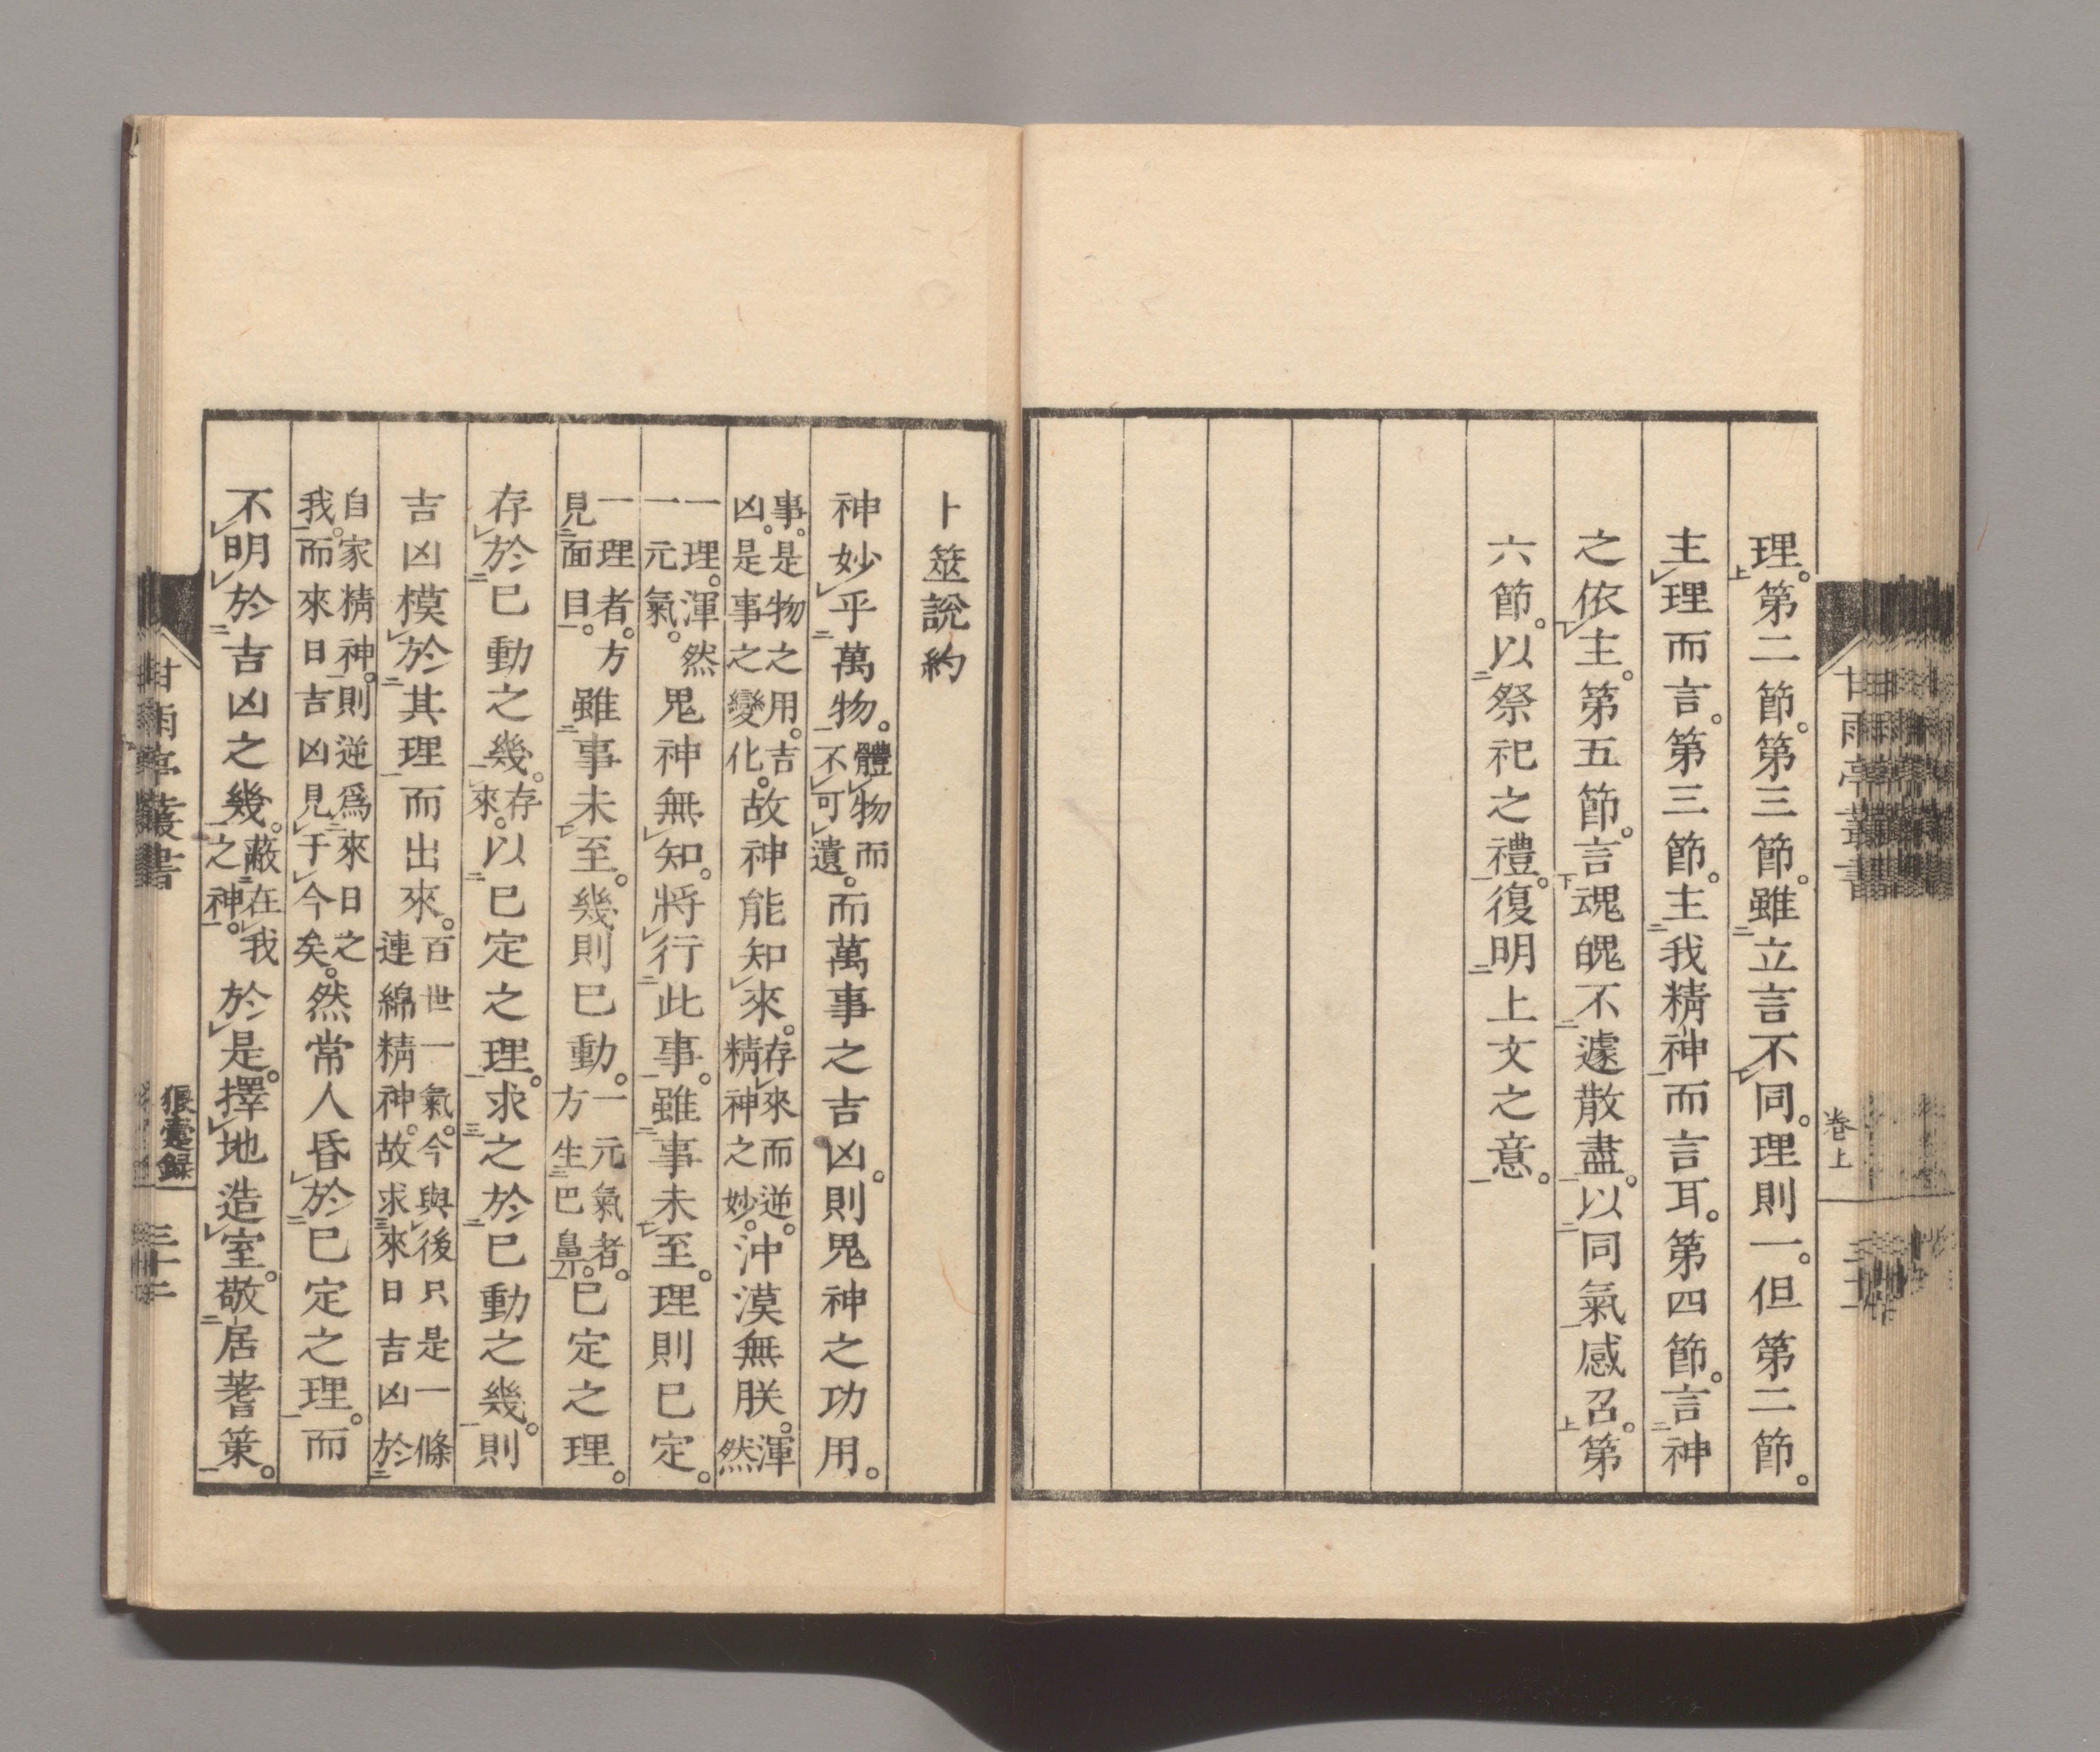 甘雨亭叢書 卷上
理。第二節。第三節。雖立言不同。理則一。但第二節。
主理而言。第三節。主我精神而言耳。第四節。言神
之依主。第五節。言魂魄不遽散盡。以同氣感召。第
六節。以祭祀之禮。復明上文之意。
卜筮說約
神妙乎萬物。體物而不可遺。而萬事之吉凶。則鬼神之功用。
事。是物之用。吉凶。是事之變化。故神能知來。存來而逆。精神之妙。沖漠無朕。渾然
一理。渾然一元氣。鬼神無知。將行此事。雖事未至。理則已定。
一理者。方見面目。雖事未至。幾則已動。一元氣者。方生巴鼻。已定之理。
存於已動之幾。存來。以已定之理。求之於已動之幾。則
吉凶模於其理而出來。百世一氣。今與後只是一條連綿精神。故求來日吉凶於
自家精神。則逆爲來日之我。而來日吉凶見于今矣。然常人昏於已定之理。而
不明於吉凶之幾。蔽在我之神。於是。擇地造室。敬居蓍策。
甘雨亭叢書 狼疐録 三十二